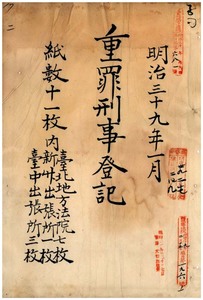 明治三十九年一月
重罪刑事登記
紙數十一枚內
臺北地方法院七枚
新竹出張所一枚
臺中出張所三枚